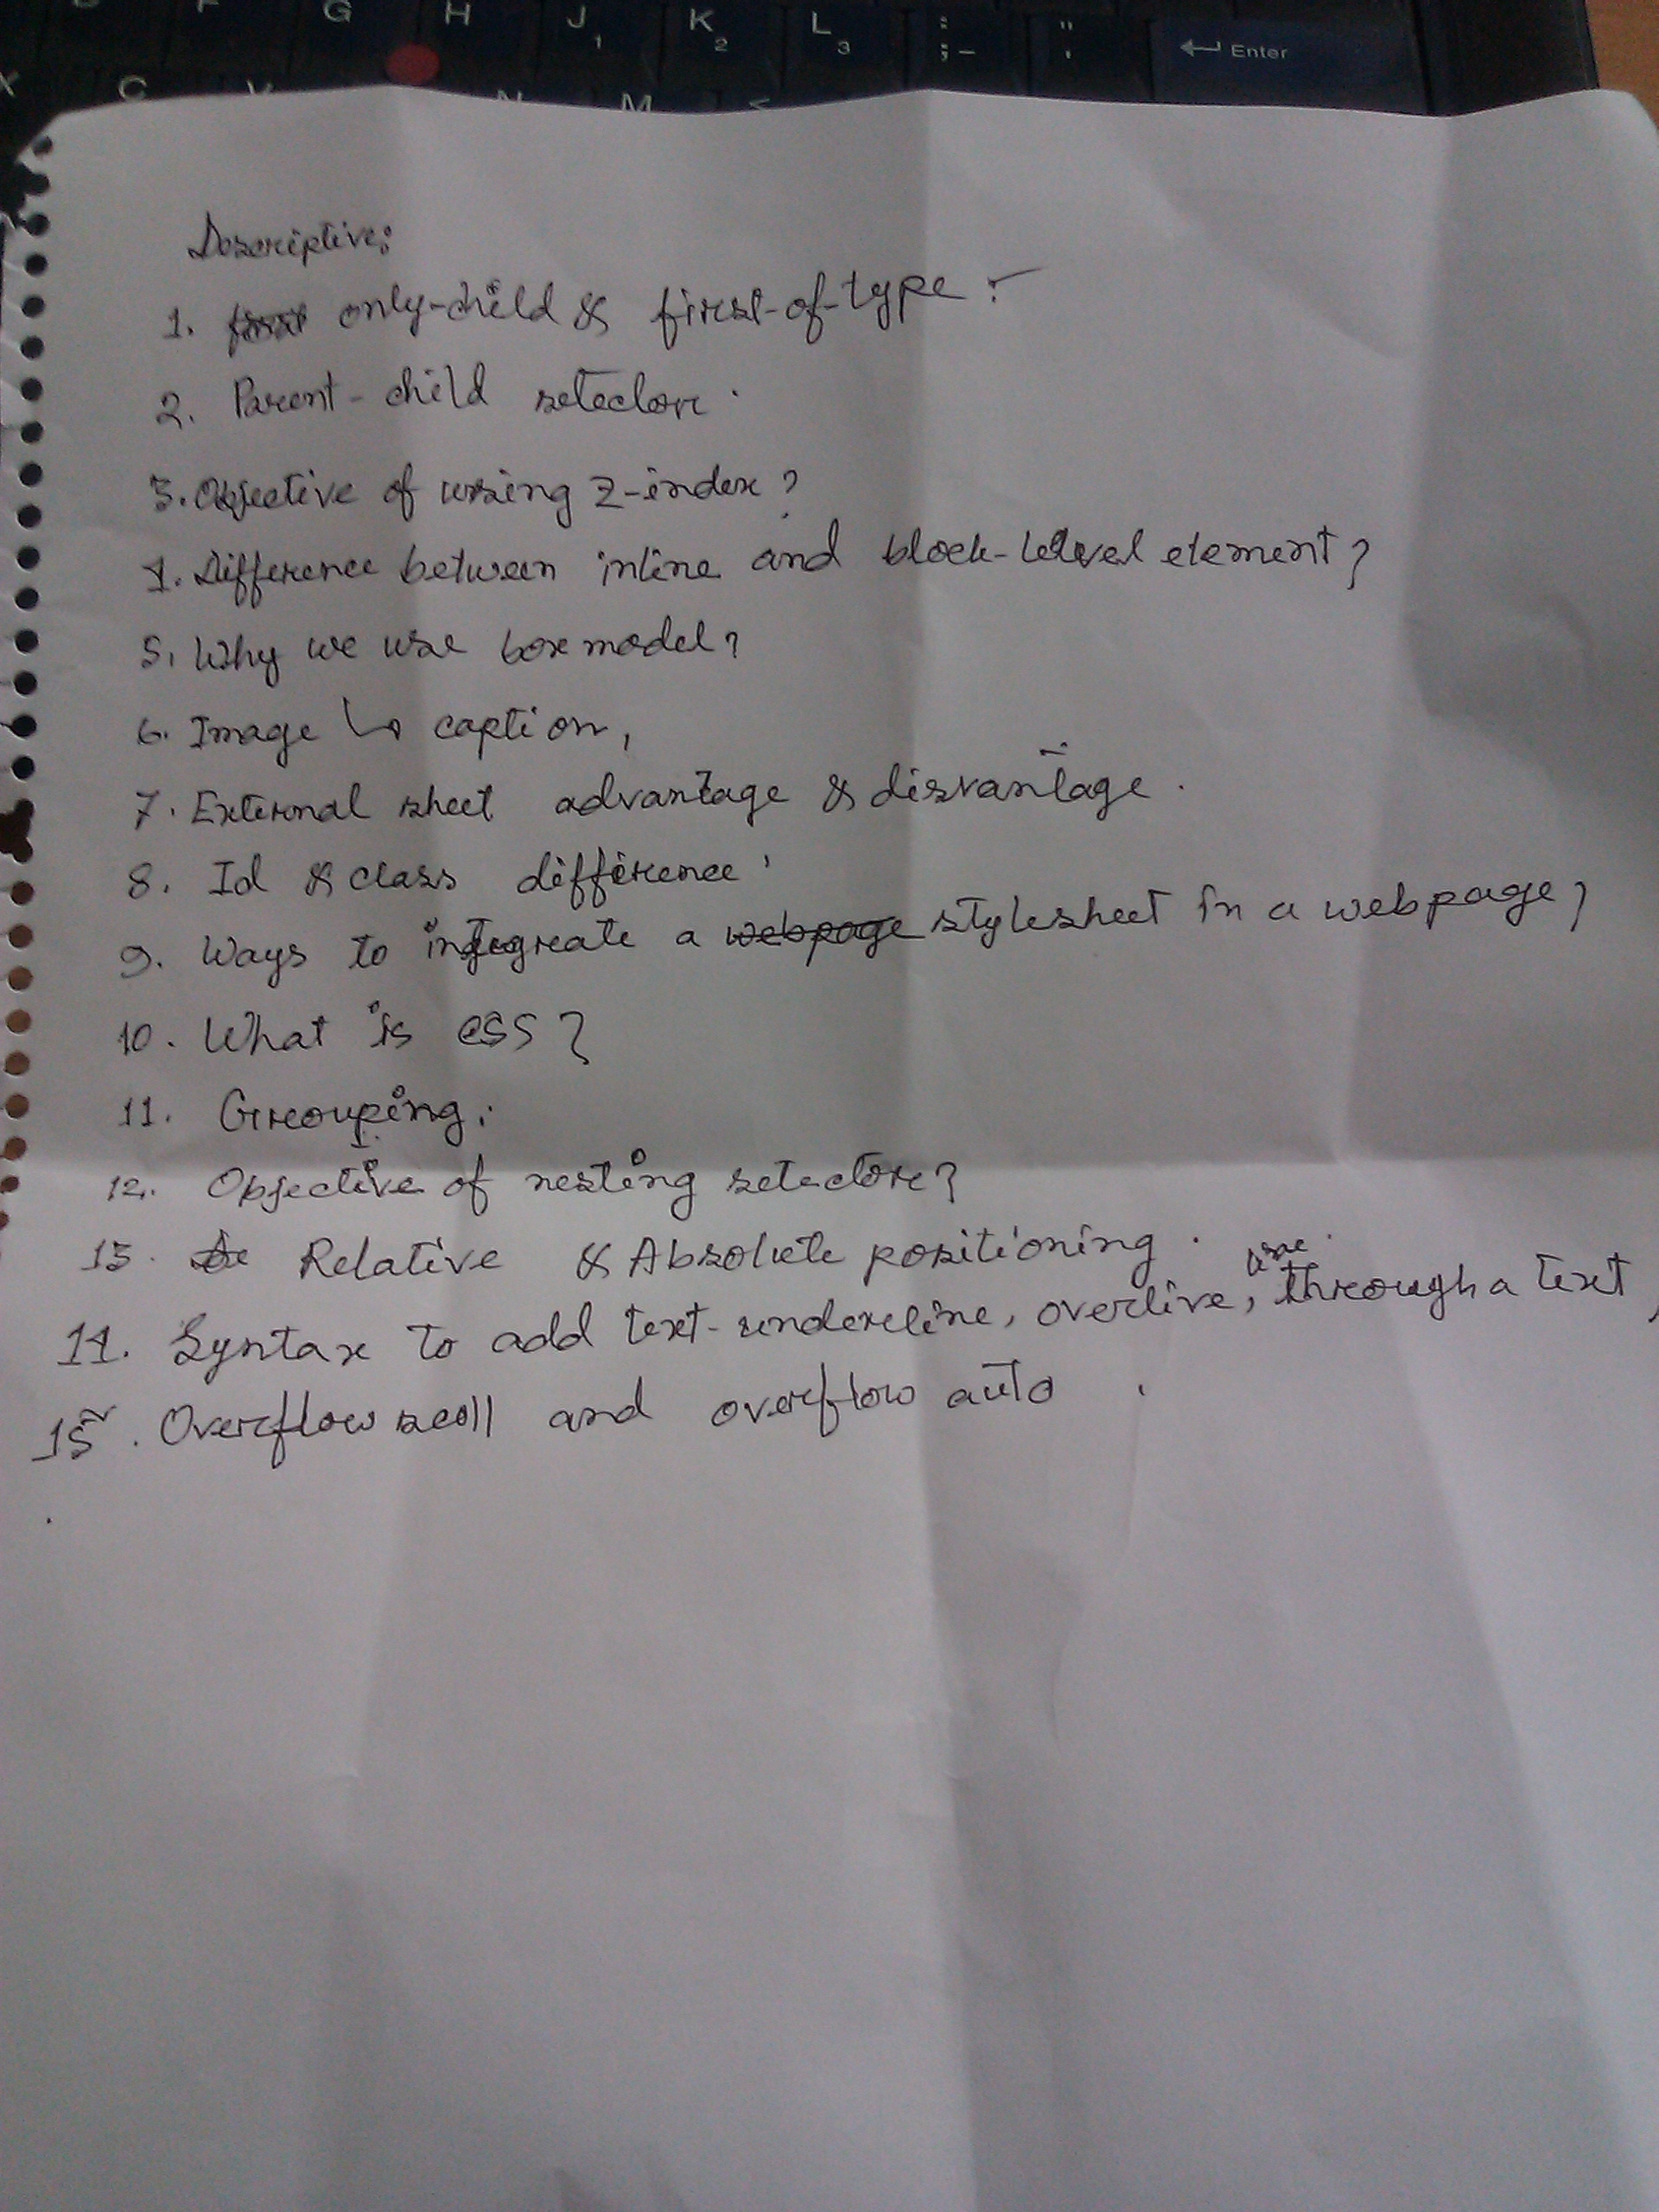 G H J 1 K 2 L 3 : ; _ " ' Enter
X C V N M <
Descriptive:
1. first only-child & first-of-type :-
2. Parent-child selector.
3. Objective of using z-index?
4. Difference between inline and block-level element?
5. Why we use box model?
6. Image ↳ caption,
7. External sheet advantage & disvantage.
8. Id & class difference'
9. Ways to integrate a webpage stylesheet in a webpage?
10. What is CSS?
11. Grouping.
12. Objective of nesting selector?
13. Relative & Absolute positioning.
14. Syntax to add text-underline, overline, line through a text,
15. Overflow scoll and overflow auto.